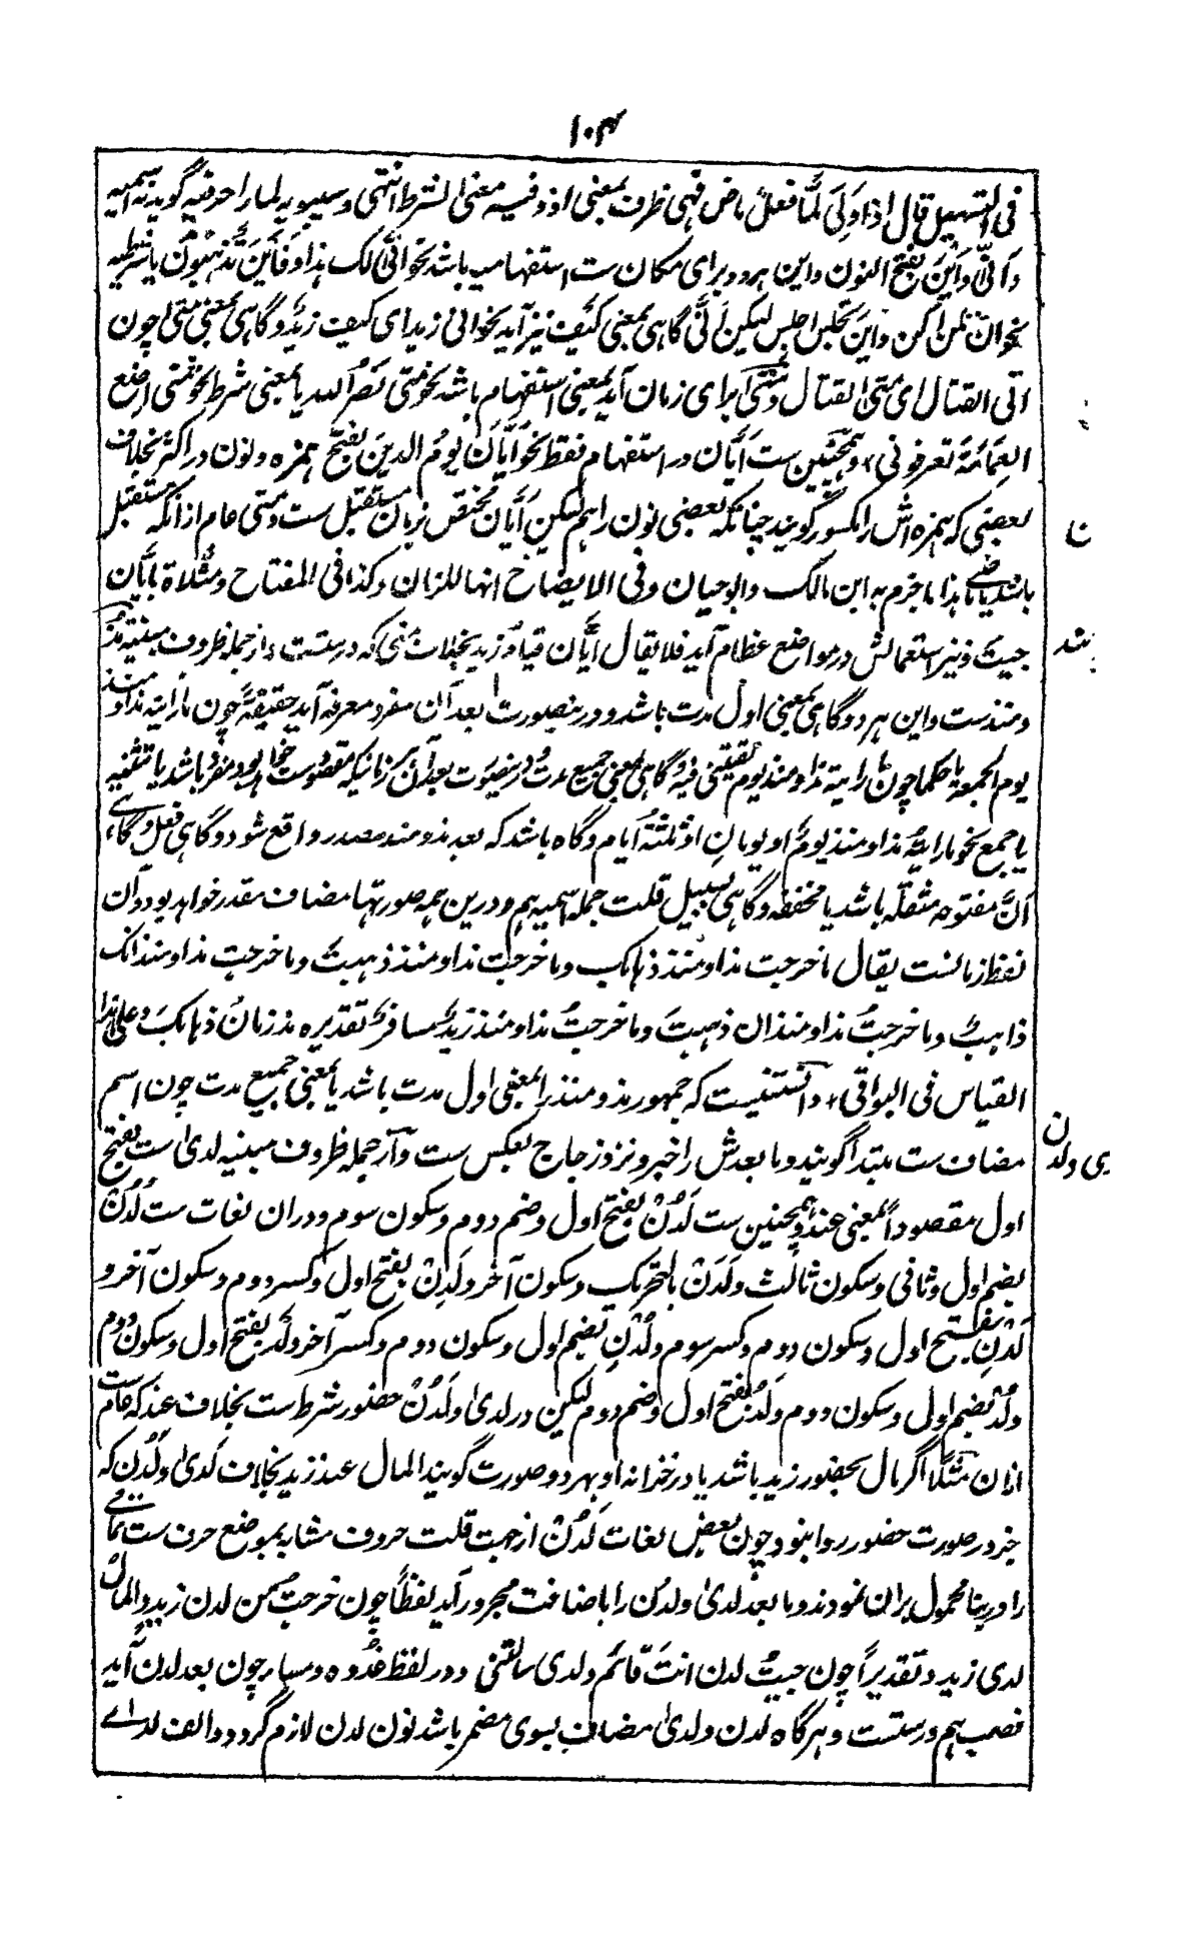 ۱۰۴
فی التسهیل قال اذا ولی لمّا فعلٌ ماض فهی ظرف بمعنی اذ و فیه معنی الشرط انتهی و سیبویه لما را حرفیه گوید نه اسمیه
و اَنّٰی و اَینَ بفتح النون و این هر دو برای مکان ست استفهامیه باشد نحو اَنّٰی لک هذا و فَاَینَ تَذهبُون یا شرطیه
نحو انّٰی تکن اکن و این تجلس اجلس لیکن اَنّٰی گاهی بمعنی کیف نیز آید نحو انی زید ای کیف زیدٌ و گاهی بمعنی متی چون
انی القتال ای متی القتال و متی برای زمان آید بمعنی استفهام باشد نحو متی نصر الله یا بمعنی شرط نحو متی اضع
العِمامَةَ تعرفونی، و همچنین ست اَیّان در استفهام فقط نحو اَیّانَ یومُ الدین بفتح همزه و نون در اکثر بخلاف
بعضی که همزه اش را مکسور گویند چنانکه بعضی نون را هم لیکن اَیّان مختص بزمان مستقبل ست و متی عام ازانکه مستقبل
باشد یا ماضی هذا ما جزم به ابن مالک و ابو حیان و فی الایضاح انها للزمان و کذا فی المفتاح و مثلاه بایّان
جیتَ و نیز استعمالش در مواضع عظام آید فلا یقال اَیّان قیام زید بخلاف متی که درستست، و از جمله ظروف مبنیه مُذ
و منذست و این هر دو گاهی بمعنی اول مدت باشد و درینصورت بعد آن مفرد معرفه آید حقیقةً چون ما رایته مذ او منذ
یوم الجمعة یا حکما چون ما رایته مذ او منذ یوم لقیتنی فیه و گاهی بمعنی جمیع مدت و درینصورت بعد آن زمانیکه مقصودست خواهد بود مفرد باشد یا تثنیه
یا جمع نحو ما رایتُه مذ او منذ یومٌ او یومانِ او ثلثةُ ایام و گاه باشد که بعد مذ و منذ مصدر واقع شود و گاهی فعل و گاهے
اَنَّ مفتوحه مثقله باشد یا مخففه و گاهی بسبیل قلت جمله اسمیه هم و درین همه صورتها مضاف مقدر خواهد بود و آن
لفظ زمانست یقال ما خرجت مذ او منذ ذهابک و ما خرجت مذ او منذ ذهبتَ و ما خرجت مذ او منذ انک
ذاهبٌ و ما خرجتُ مذ او منذ ان ذهبتَ و ما خرجتُ مذ او منذ زیدٌ مسافرٌ تقدیره مذ زمانُ ذهابکَ و علی هذا
القیاس فی البواقی، و دانستنیست که جمهور مذ و منذ را بمعنی اول مدت باشد یا بمعنی جمیع مدت چون اسم
مضاف ست مبتدا گویند و ما بعدش را خبر و نزد زجاج بعکس ست و از جمله ظروف مبنیه لدیٰ ست بفتح
اول مقصوداً بمعنی عند و همچنین ست لَدُنْ بفتح اول و ضم دوم و سکون سوم و دران لغات ست لُدُنْ
بضم اول و ثانی و سکون ثالث و لَدَنْ بالتحریک و سکون آخر و لَدِنْ بفتح اول و کسر دوم و سکون آخر و
لَدْنِ بفتح اول و سکون دوم و کسر سوم و لُدْنِ بضم اول و سکون دوم و کسر آخر و لَدْ بفتح اول و سکون دوم
و لُدْ بضم اول و سکون دوم و لَدُ بفتح اول و ضم دوم لیکن در لدیٰ و لَدُنْ حضور شرط ست بخلاف عند که عام ست
ازان مثلاً اگر مال بحضور زید باشد یا در خزانه او بهر دو صورت گویند المال عند زید بخلاف لدیٰ و لَدُن که
جز در صورت حضور روا نبود و چون بعض لغات لَدُنْ از جهت قلت حروف مشابه بموضع حرف ست تمامی
را در بنا محمول بران نمودند و ما بعد لدیٰ و لدن را باضافت مجرور آید لفظاً چون خرجت من لدن زید و المالُ
لدی زید و تقدیراً چون جیتُ لدن انتَ قائم و لدی سالتنی و در لفظ غُدوه و مساء چون بعد لدن آید
نصب هم درستست و هرگاه لدن و لدیٰ مضاف بسوی مضمر باشد نون لدن لازم گردد و الف لداے